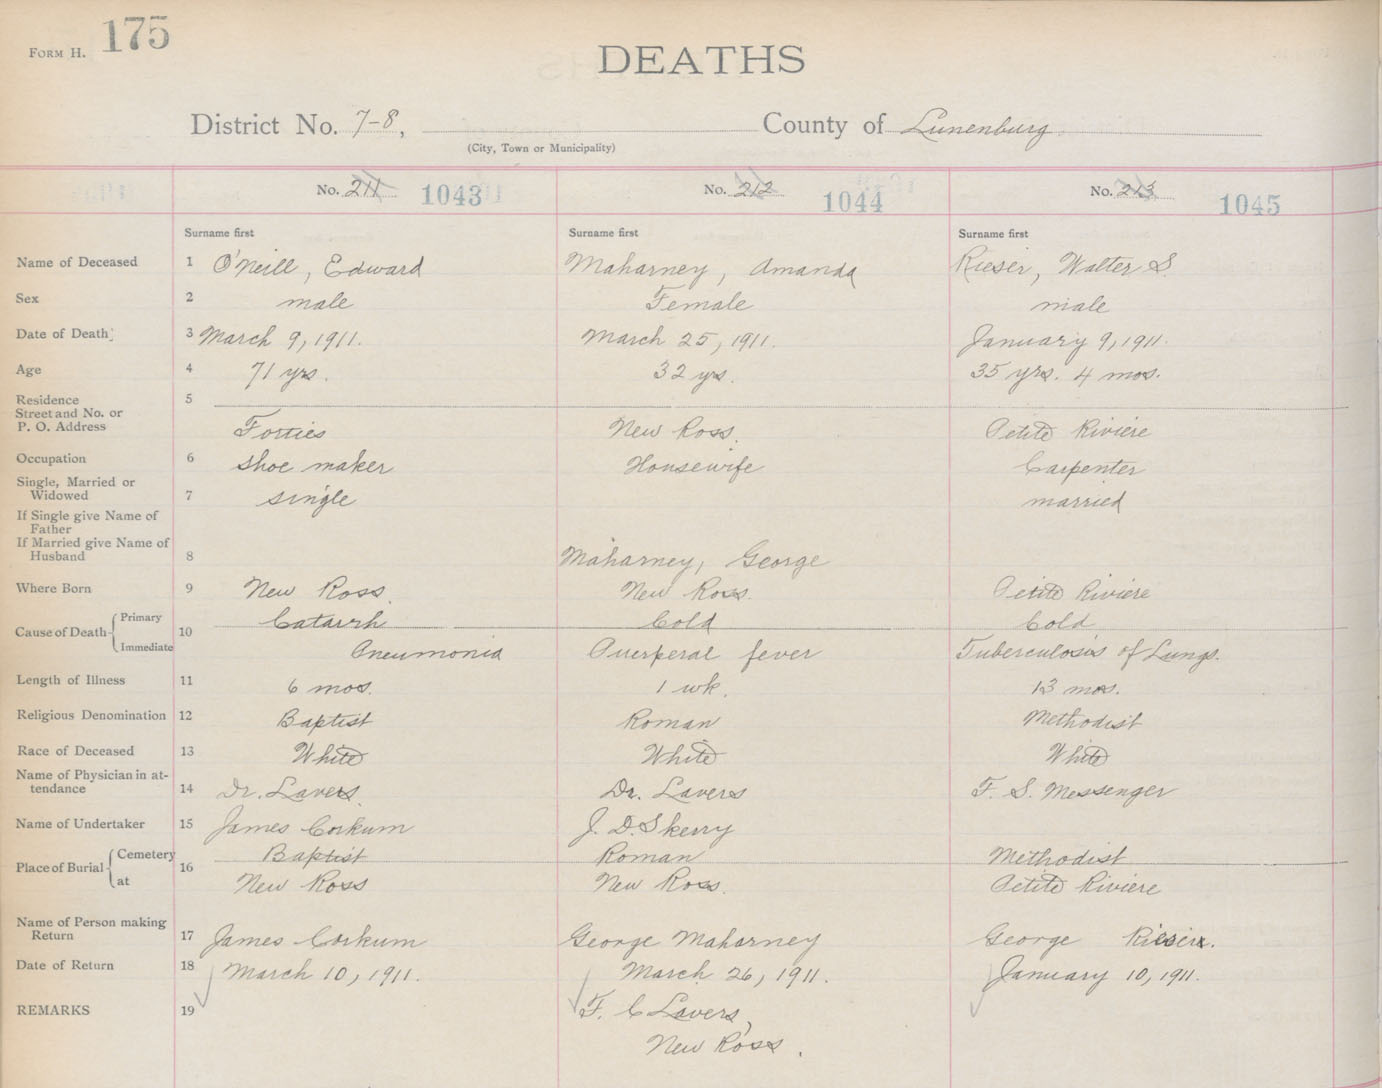 FORM H. 175
DEATHS
District No. 7-8, County of Lunenburg
(City, Town or Municipality)
No. 211 1043 No. 212 1044 No. 213 1045
Surname first Surname first Surname first
Name of Deceased 1 O'Neill, Edward Maharney, Amanda Rieser, Walter S.
Sex 2 male Female male
Date of Death 3 March 9, 1911. March 25, 1911. January 9, 1911.
Age 4 71 yrs. 32 yrs. 35 yrs. 4 mos.
Residence 5
Street and No. or
P. O. Address Forties New Ross. Petite Riviere
Occupation 6 shoe maker Housewife Carpenter
Single, Married or
Widowed 7 single married
If Single give Name of
Father
If Married give Name of
Husband 8 Maharney, George
Where Born 9 New Ross New Ross. Petite Riviere
Cause of Death 10 Primary Catarrh Cold Cold
Immediate Pneumonia Puerperal fever Tuberculosis of Lungs.
Length of Illness 11 6 mos. 1 wk. 13 mos.
Religious Denomination 12 Baptist Roman Methodist
Race of Deceased 13 White White White
Name of Physician in at-
tendance 14 Dr. Lavers Dr. Lavers F. S. Messenger
Name of Undertaker 15 James Corkum J. D. Skerry
Place of Burial 16 Cemetery Baptist Roman Methodist
at New Ross New Ross. Petite Riviere
Name of Person making
Return 17 James Corkum George Maharney George Rieser.
Date of Return 18 March 10, 1911. March 26, 1911. January 10, 1911.
REMARKS 19 F. C Lavers,
New Ross.